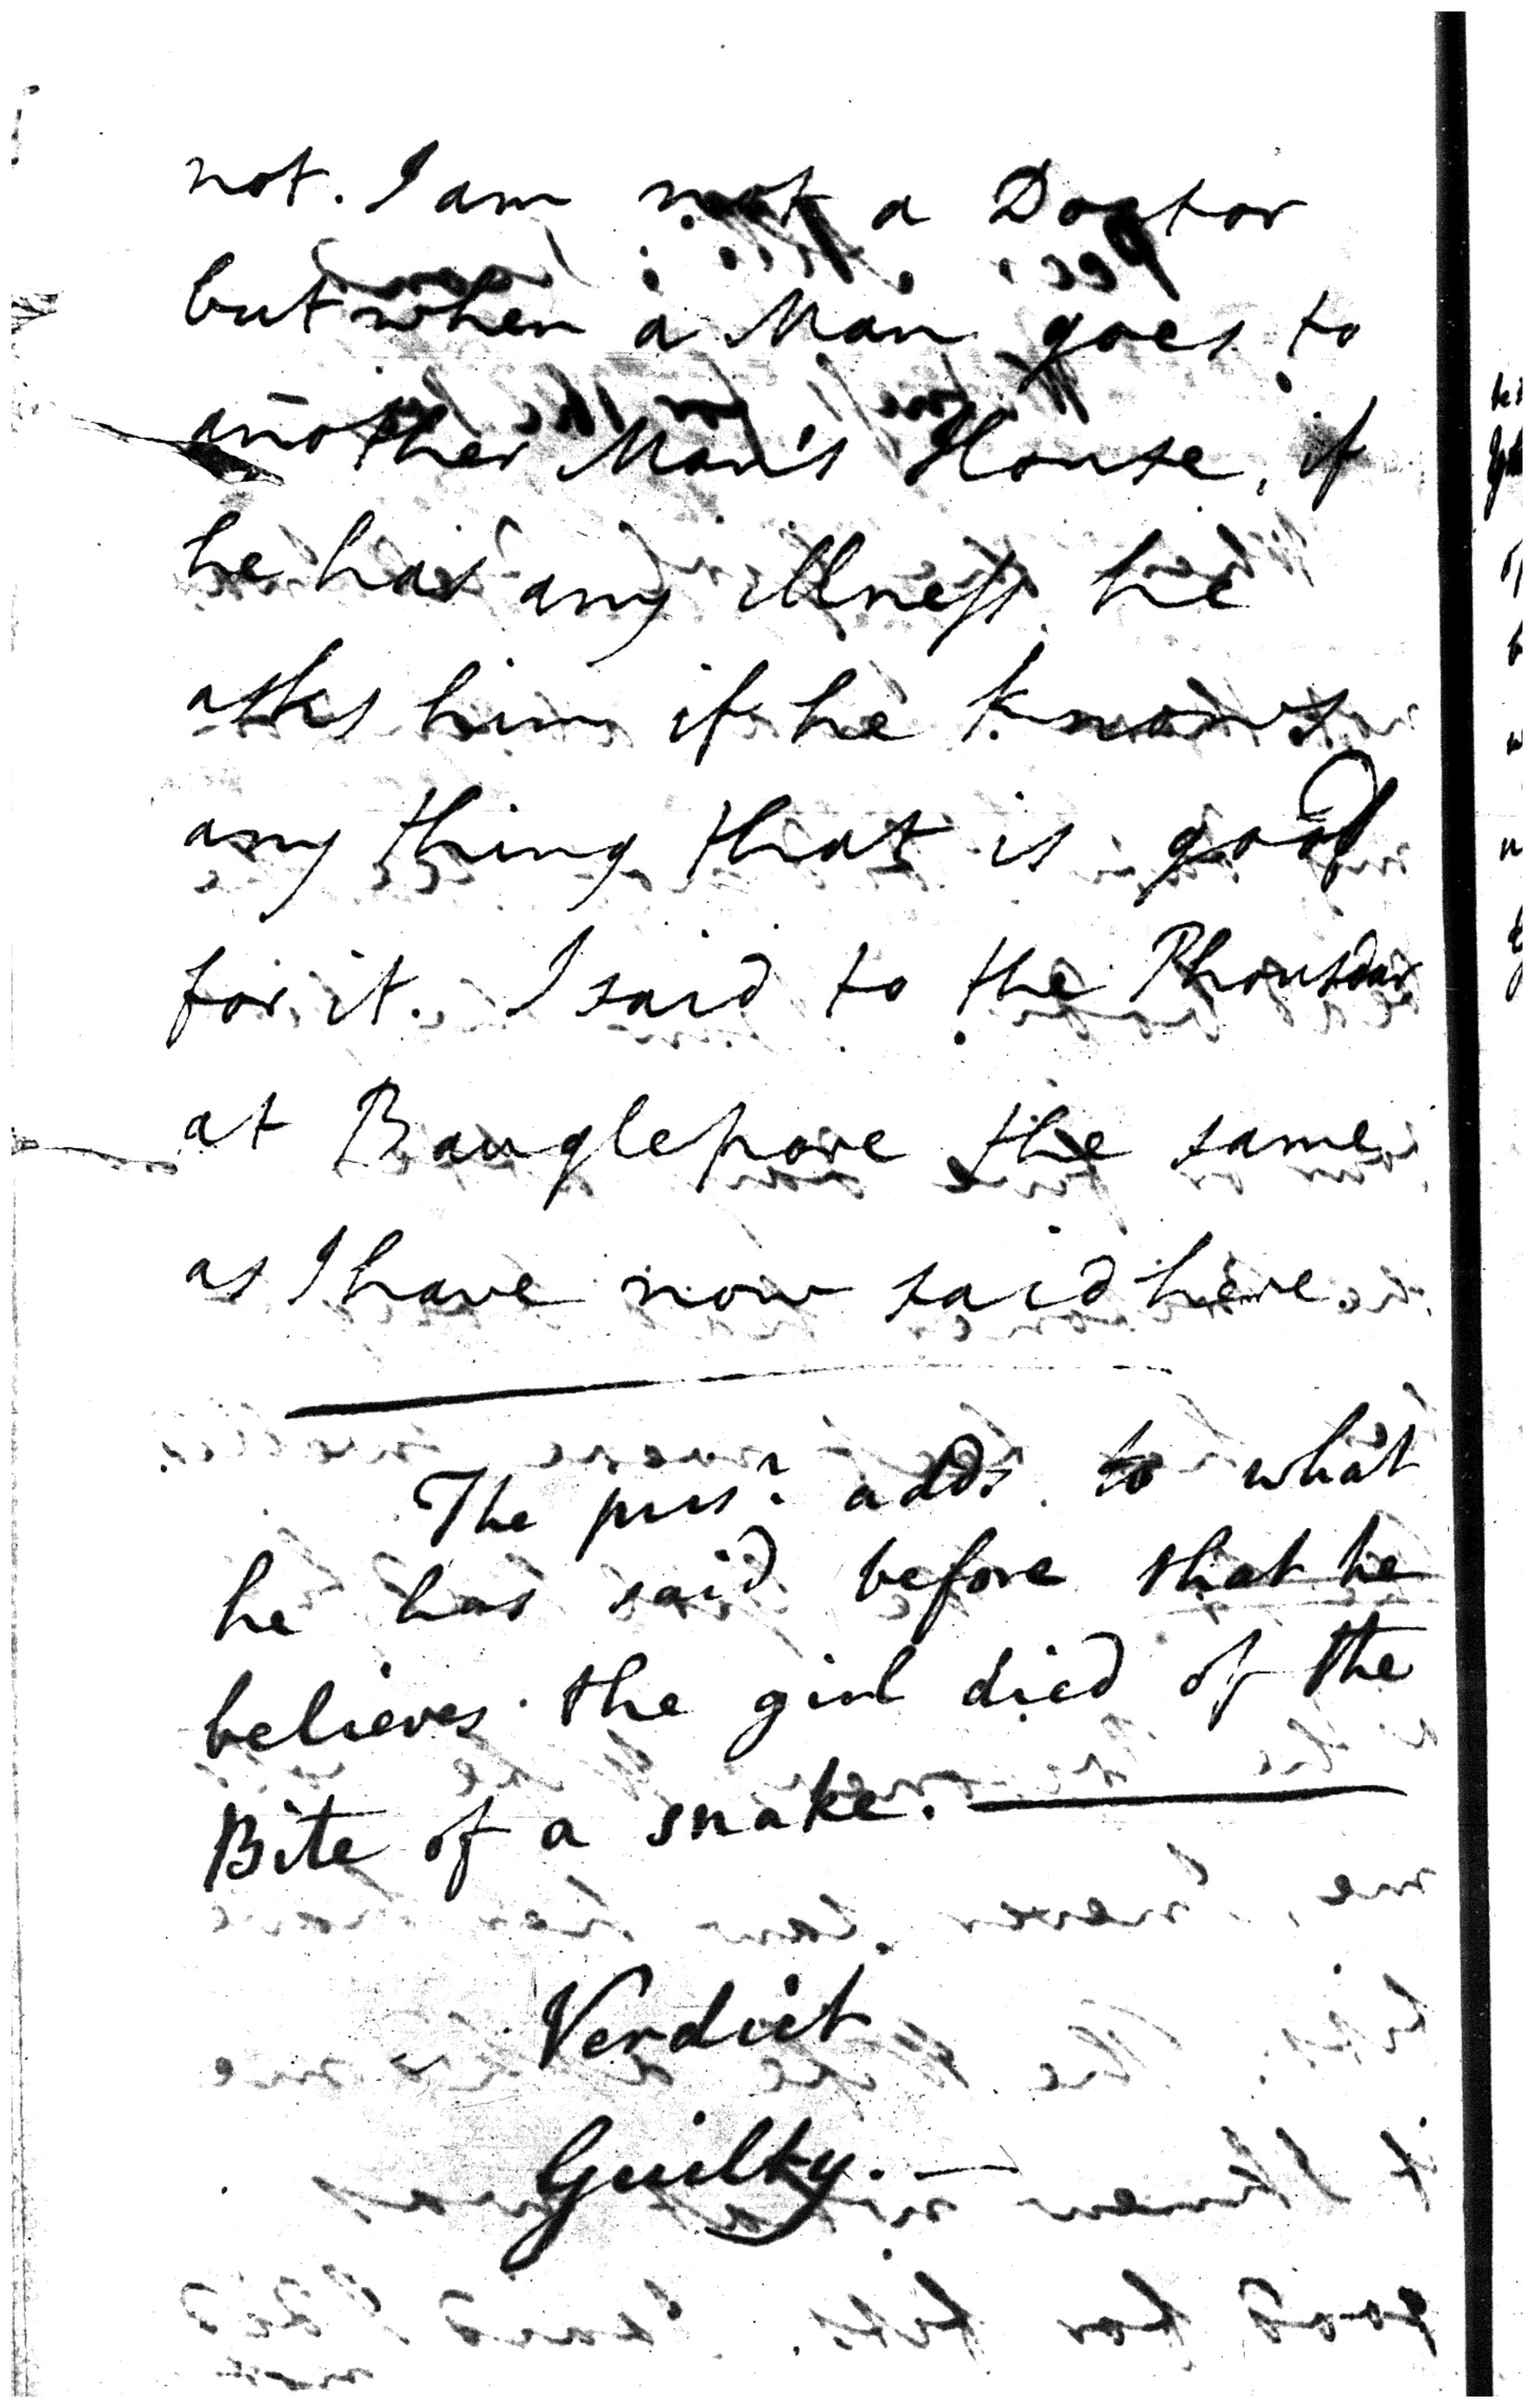 not. I am not a Doctor
but when a Man goes to
another Man's House, if
he has any illness he
asks him if he knows
any thing that is good
for it. I said to the Phousdar
at Bauglepore the same
as I have now said here.
The prisr. adds to what
he has said before that he
believes the girl died of the
Bite of a snake.
Verdict
Guilty.